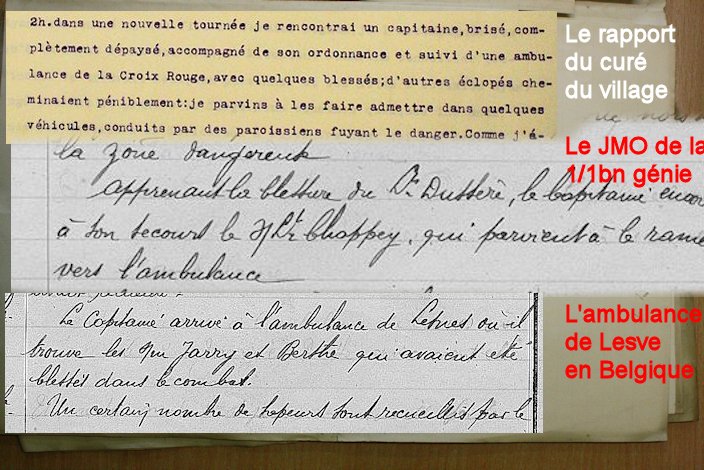 2h.dans une nouvelle tournée je rencontrai un capitaine,brisé,com-
plètement dépaysé,accompagné de son ordonnance et suivi d'une ambu-
lance de la Croix Rouge,avec quelques blessés;d'autres éclopés che-
minaient péniblement:je parvins à les faire admettre dans quelques
véhicules,conduits par des paroissiens fuyant le danger.Comme j'é-
Le rapport
du curé
du village
la zone dangereuse
Apprenant la blessure du Lt Dussère, le Capitaine
à son secours le Mt Chappey, qui parvient à le rame
vers l'ambulance
Le JMO de la
1/1bn génie
Le Capitaine arrive à l'ambulance de Lesves où il
trouve les Jarry et Berthe qui avaient été
blessés dans le combat.
Un certain nombre de sapeurs sont recueillis par le
L'ambulance
de Lesve
en Belgique